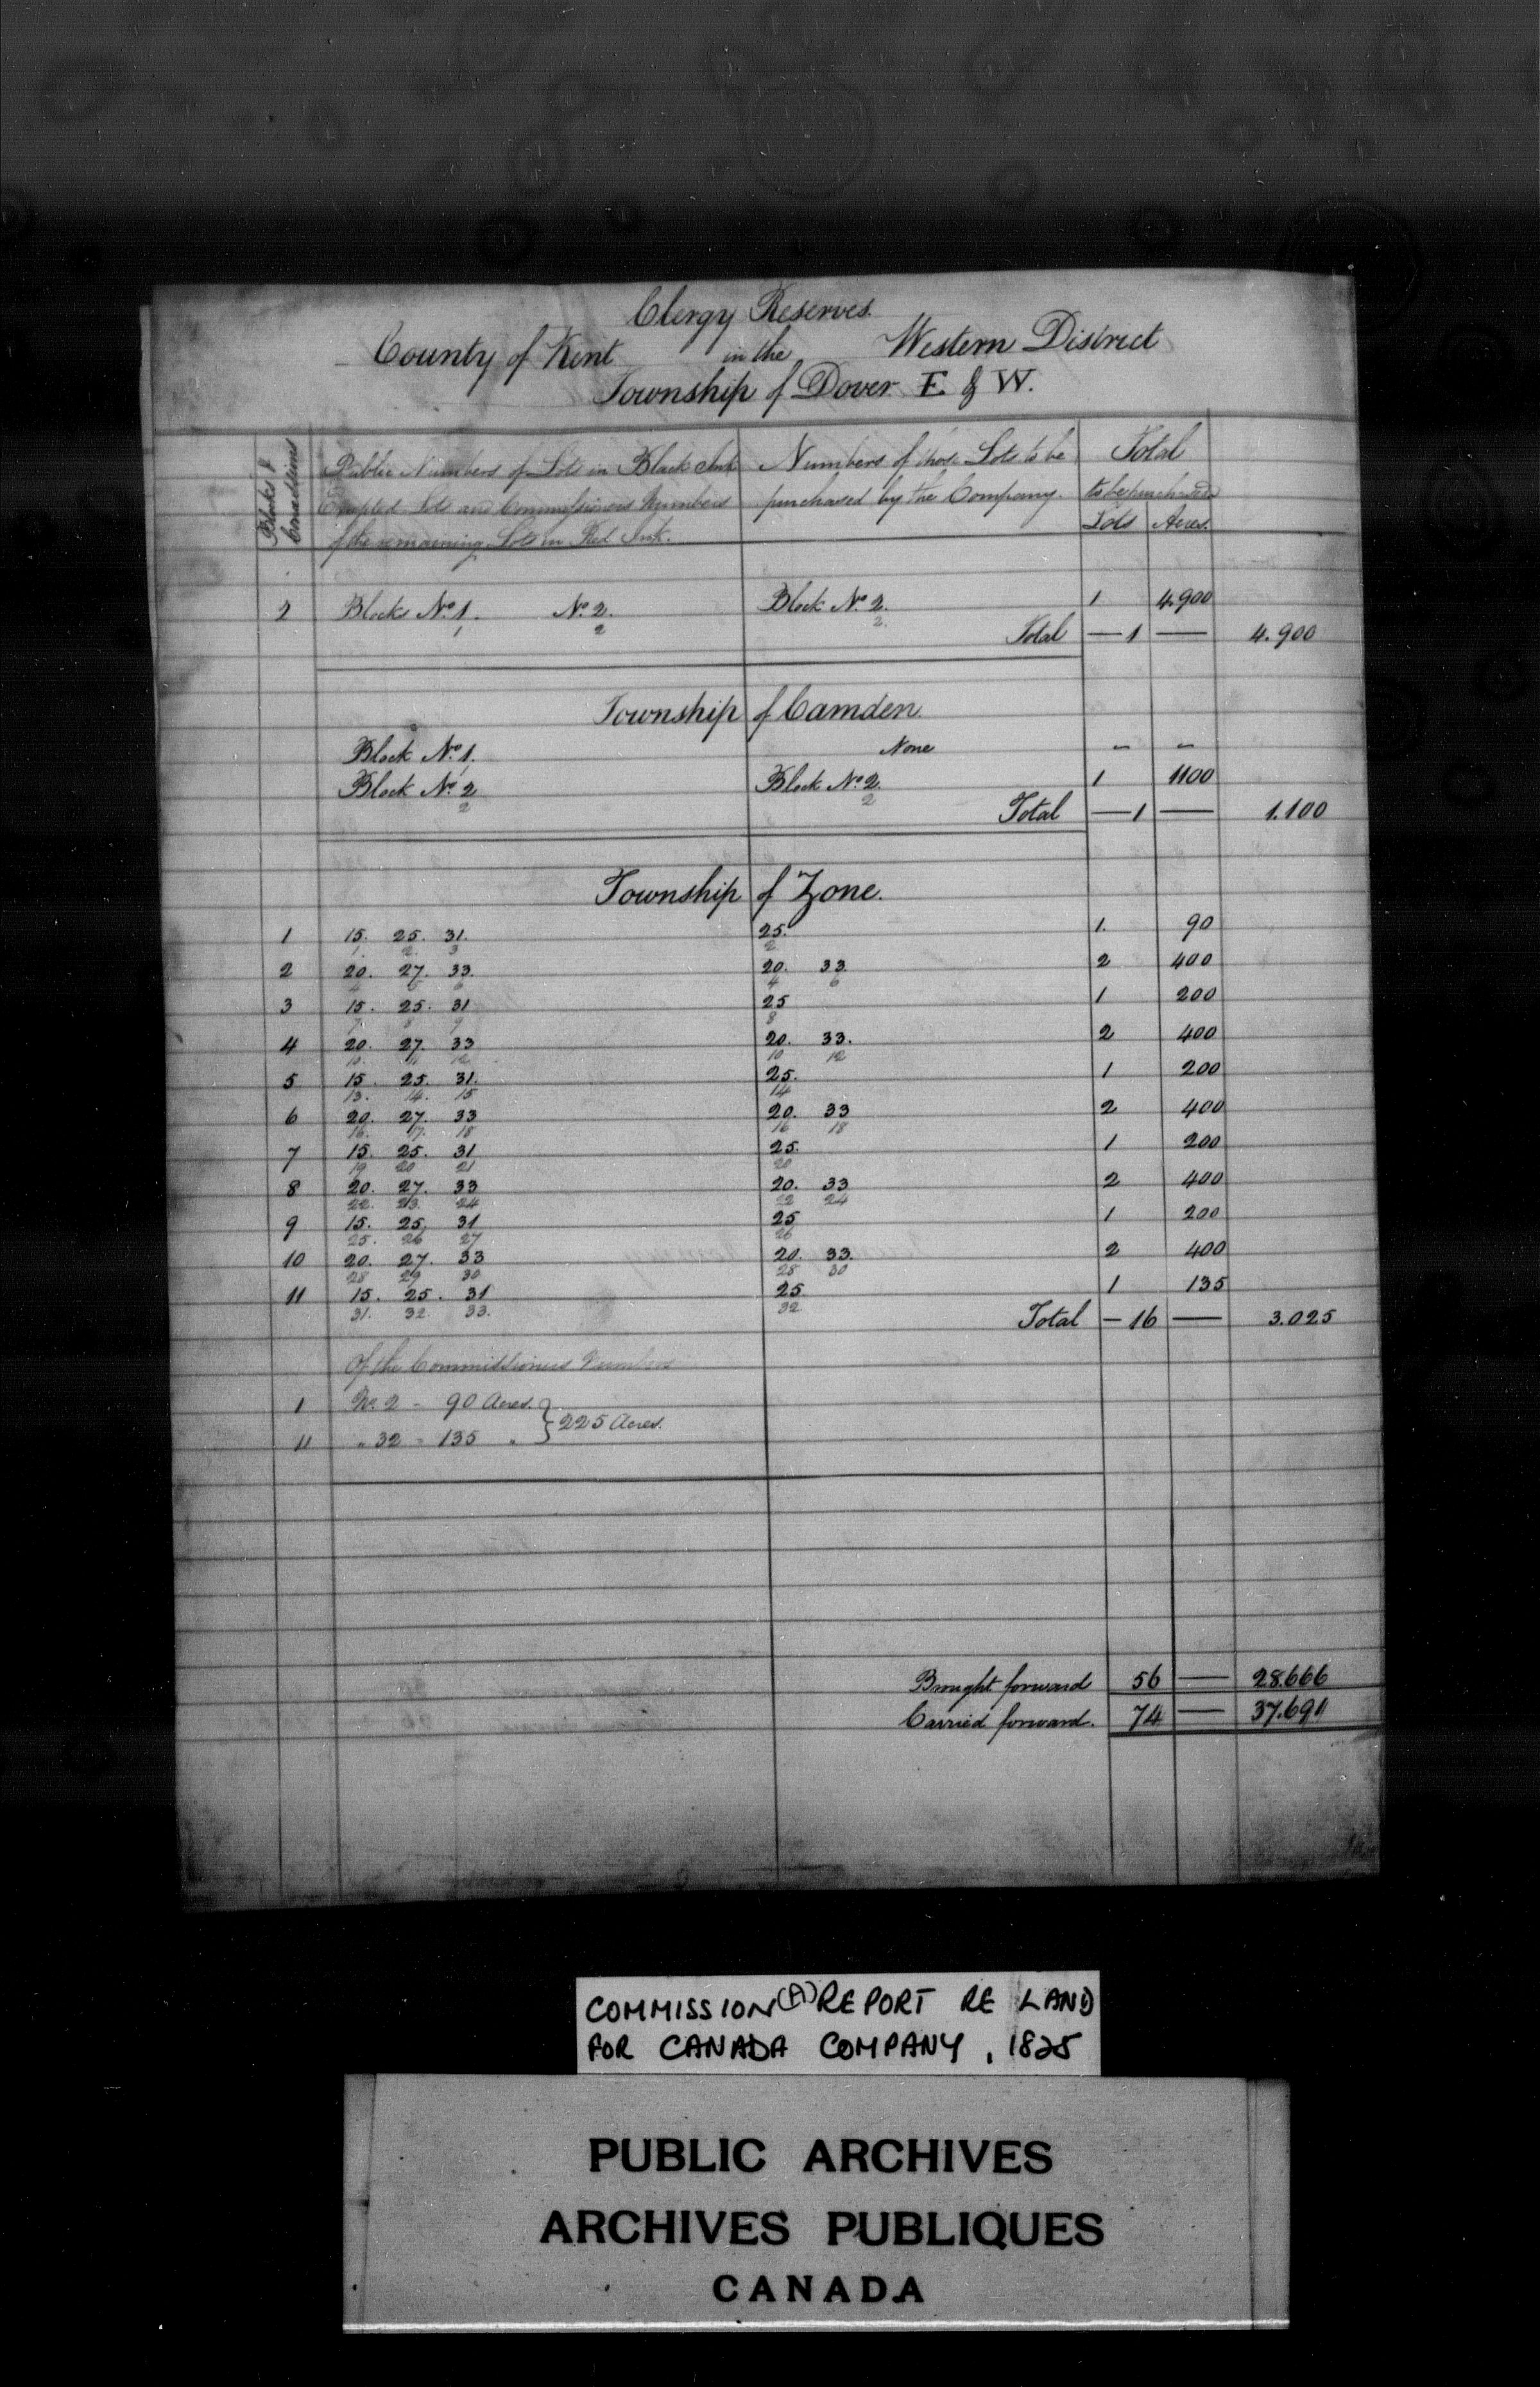 Clergy Reserves.
County of Kent in the Western District
Township of Dover E & W.
Blocks & Concessions
Public Numbers of Lots in Black Ink Numbers of those Lots to be Total
Excepted Lots and Commissioners Numbers purchased by the Company. to be purchased
of the remaining Lots in Red Ink. Lots Acres.
2 Blocks No. 1. No. 2. Block No. 2. 1 4.900
1 2 2.
Total — 1 — 4.900
Township of Camden.
Block No. 1. None - -
1
Block No. 2 Block No. 2. 1 1100
2 2
Total — 1 — 1.100
Township of Zone.
1 15. 25. 31. 25. 1. 90
1. 2. 3 2
2 20. 27. 33. 20. 33. 2 400
4 5 6 4 6
3 15. 25. 31 25 1 200
7. 8 9 8
4 20. 27. 33 20. 33. 2 400
10. 11 12 10 12
5 15. 25. 31. 25. 1 200
13. 14. 15 14
6 20. 27. 33 20. 33 2 400
16. 17. 18 16 18
7 15. 25. 31 25. 1 200
19 20 21 20
8 20. 27. 33 20. 33 2 400
22. 23. 24 22 24
9 15. 25. 31 25 1 200
25. 26 27 26
10 20. 27. 33 20. 33. 2 400
28 29 30 28 30
11 15. 25. 31 25 1 135
31. 32. 33. 32
Total — 16 — 3.025
Of the Commissioners Numbers
1 No. 2 - 90 Acres. } 225 Acres.
11 " 32 - 135 "
Brought forward 56 — 28.666
Carried forward. 74 — 37.691
COMMISSION (A) REPORT RE LAND
FOR CANADA COMPANY, 1825
PUBLIC ARCHIVES
ARCHIVES PUBLIQUES
CANADA